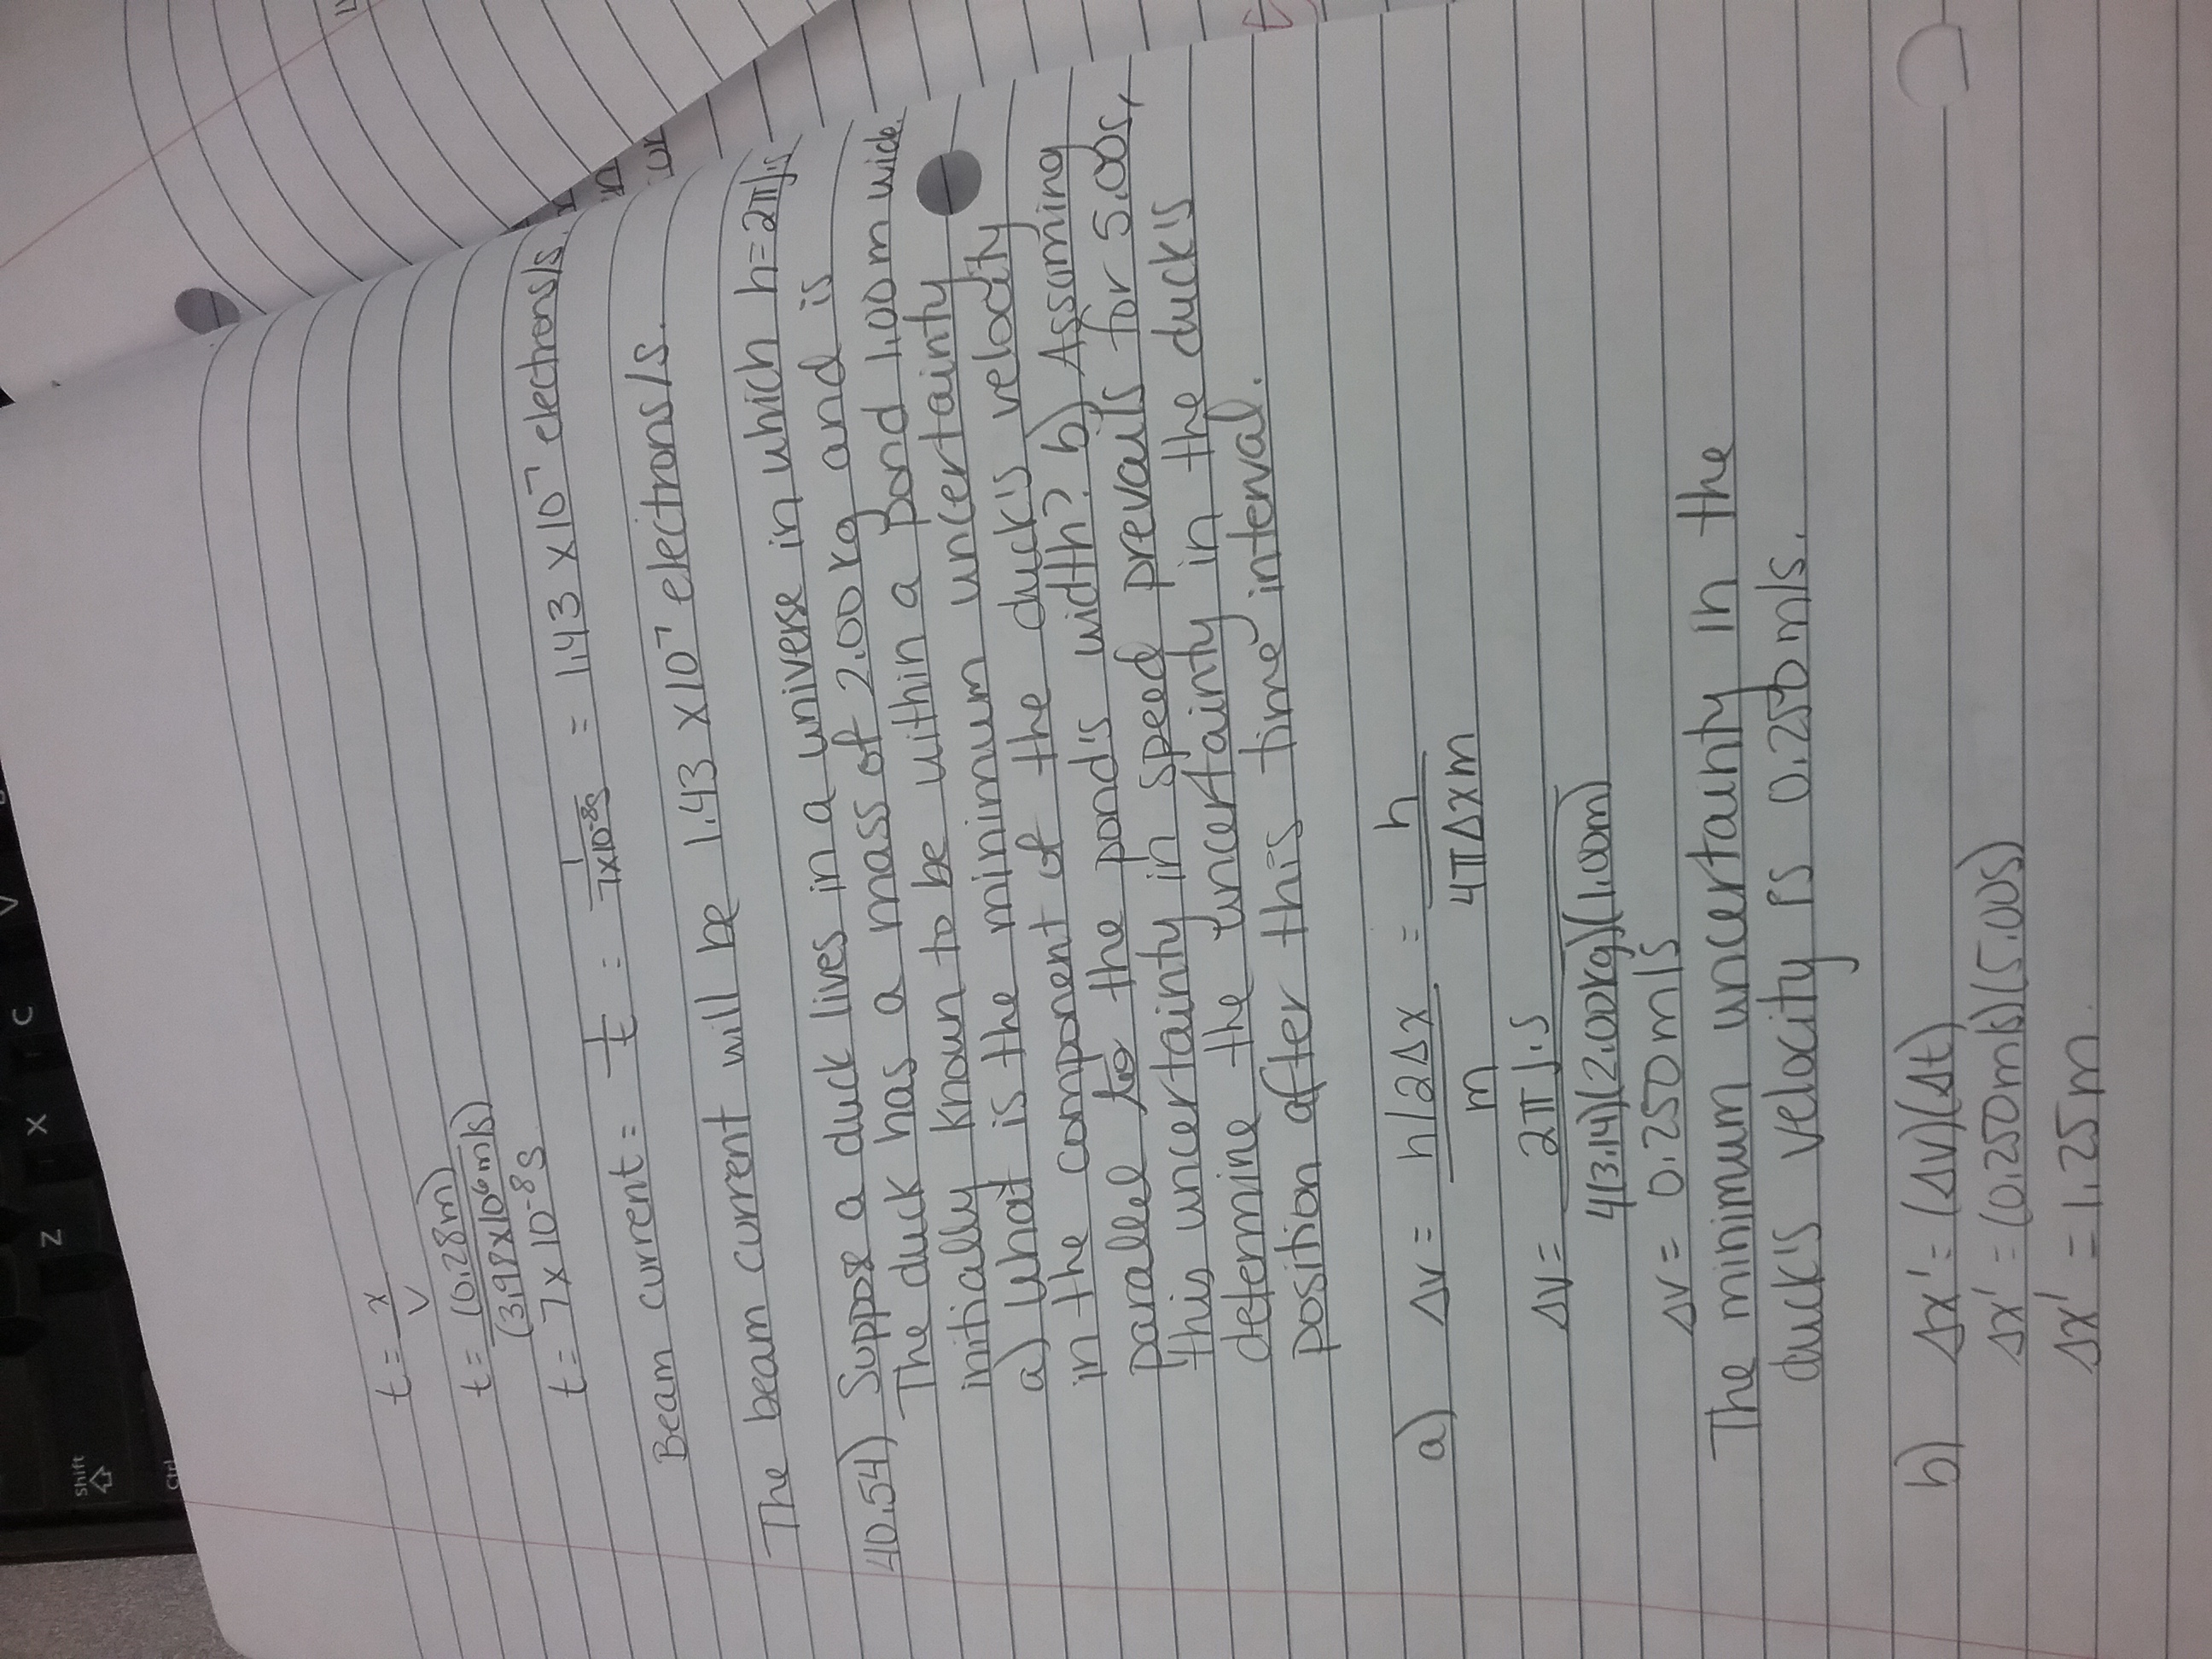 t = x/v
t = (0.28m)/(3.98x10⁶m/s)
t = 7 x 10⁻⁸s
Beam current = 1/t = 1/7x10⁻⁸s = 1.43 x10⁷ electrons/s.
The beam current will be 1.43 x10⁷ electrons/s.
40.54) Suppose a duck lives in a universe in which h=2πJ.s
The duck has a mass of 2.00kg and is
initially known to be within a pond 1.00m wide.
a) What is the minimum uncertainty
in the component of the duck's velocity
parallel to the pond's width? b) Assuming
this uncertainty in speed prevails for 5.00s,
determine the uncertainty in the duck's
position after this time interval.
a) Δv = h/2Δx / m = h / 4πΔxm
Δv = 2πJ.s / 4(3.14)(2.00kg)(1.00m)
Δv = 0.250m/s
The minimum uncertainty in the
duck's velocity is 0.250m/s.
b) Δx' = (Δv)(Δt)
Δx' = (0.250m/s)(5.00s)
Δx' = 1.25m
Shift
Ctrl
Z
X
C
V